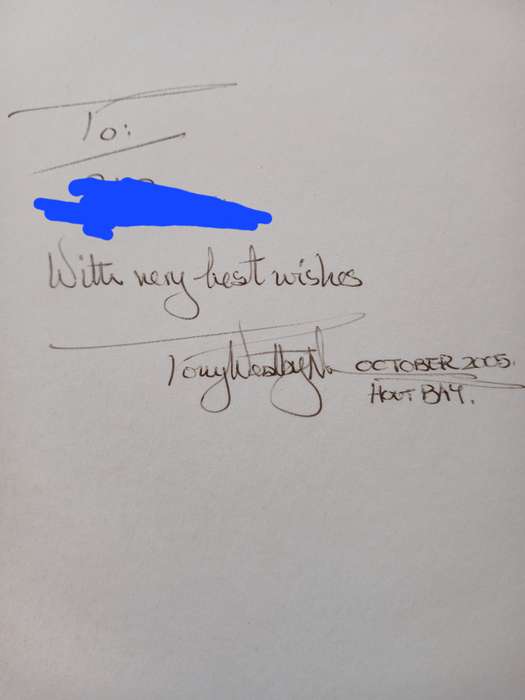 To:
With very best wishes
Tony Westby-Nunn OCTOBER 2005.
HOUT BAY.